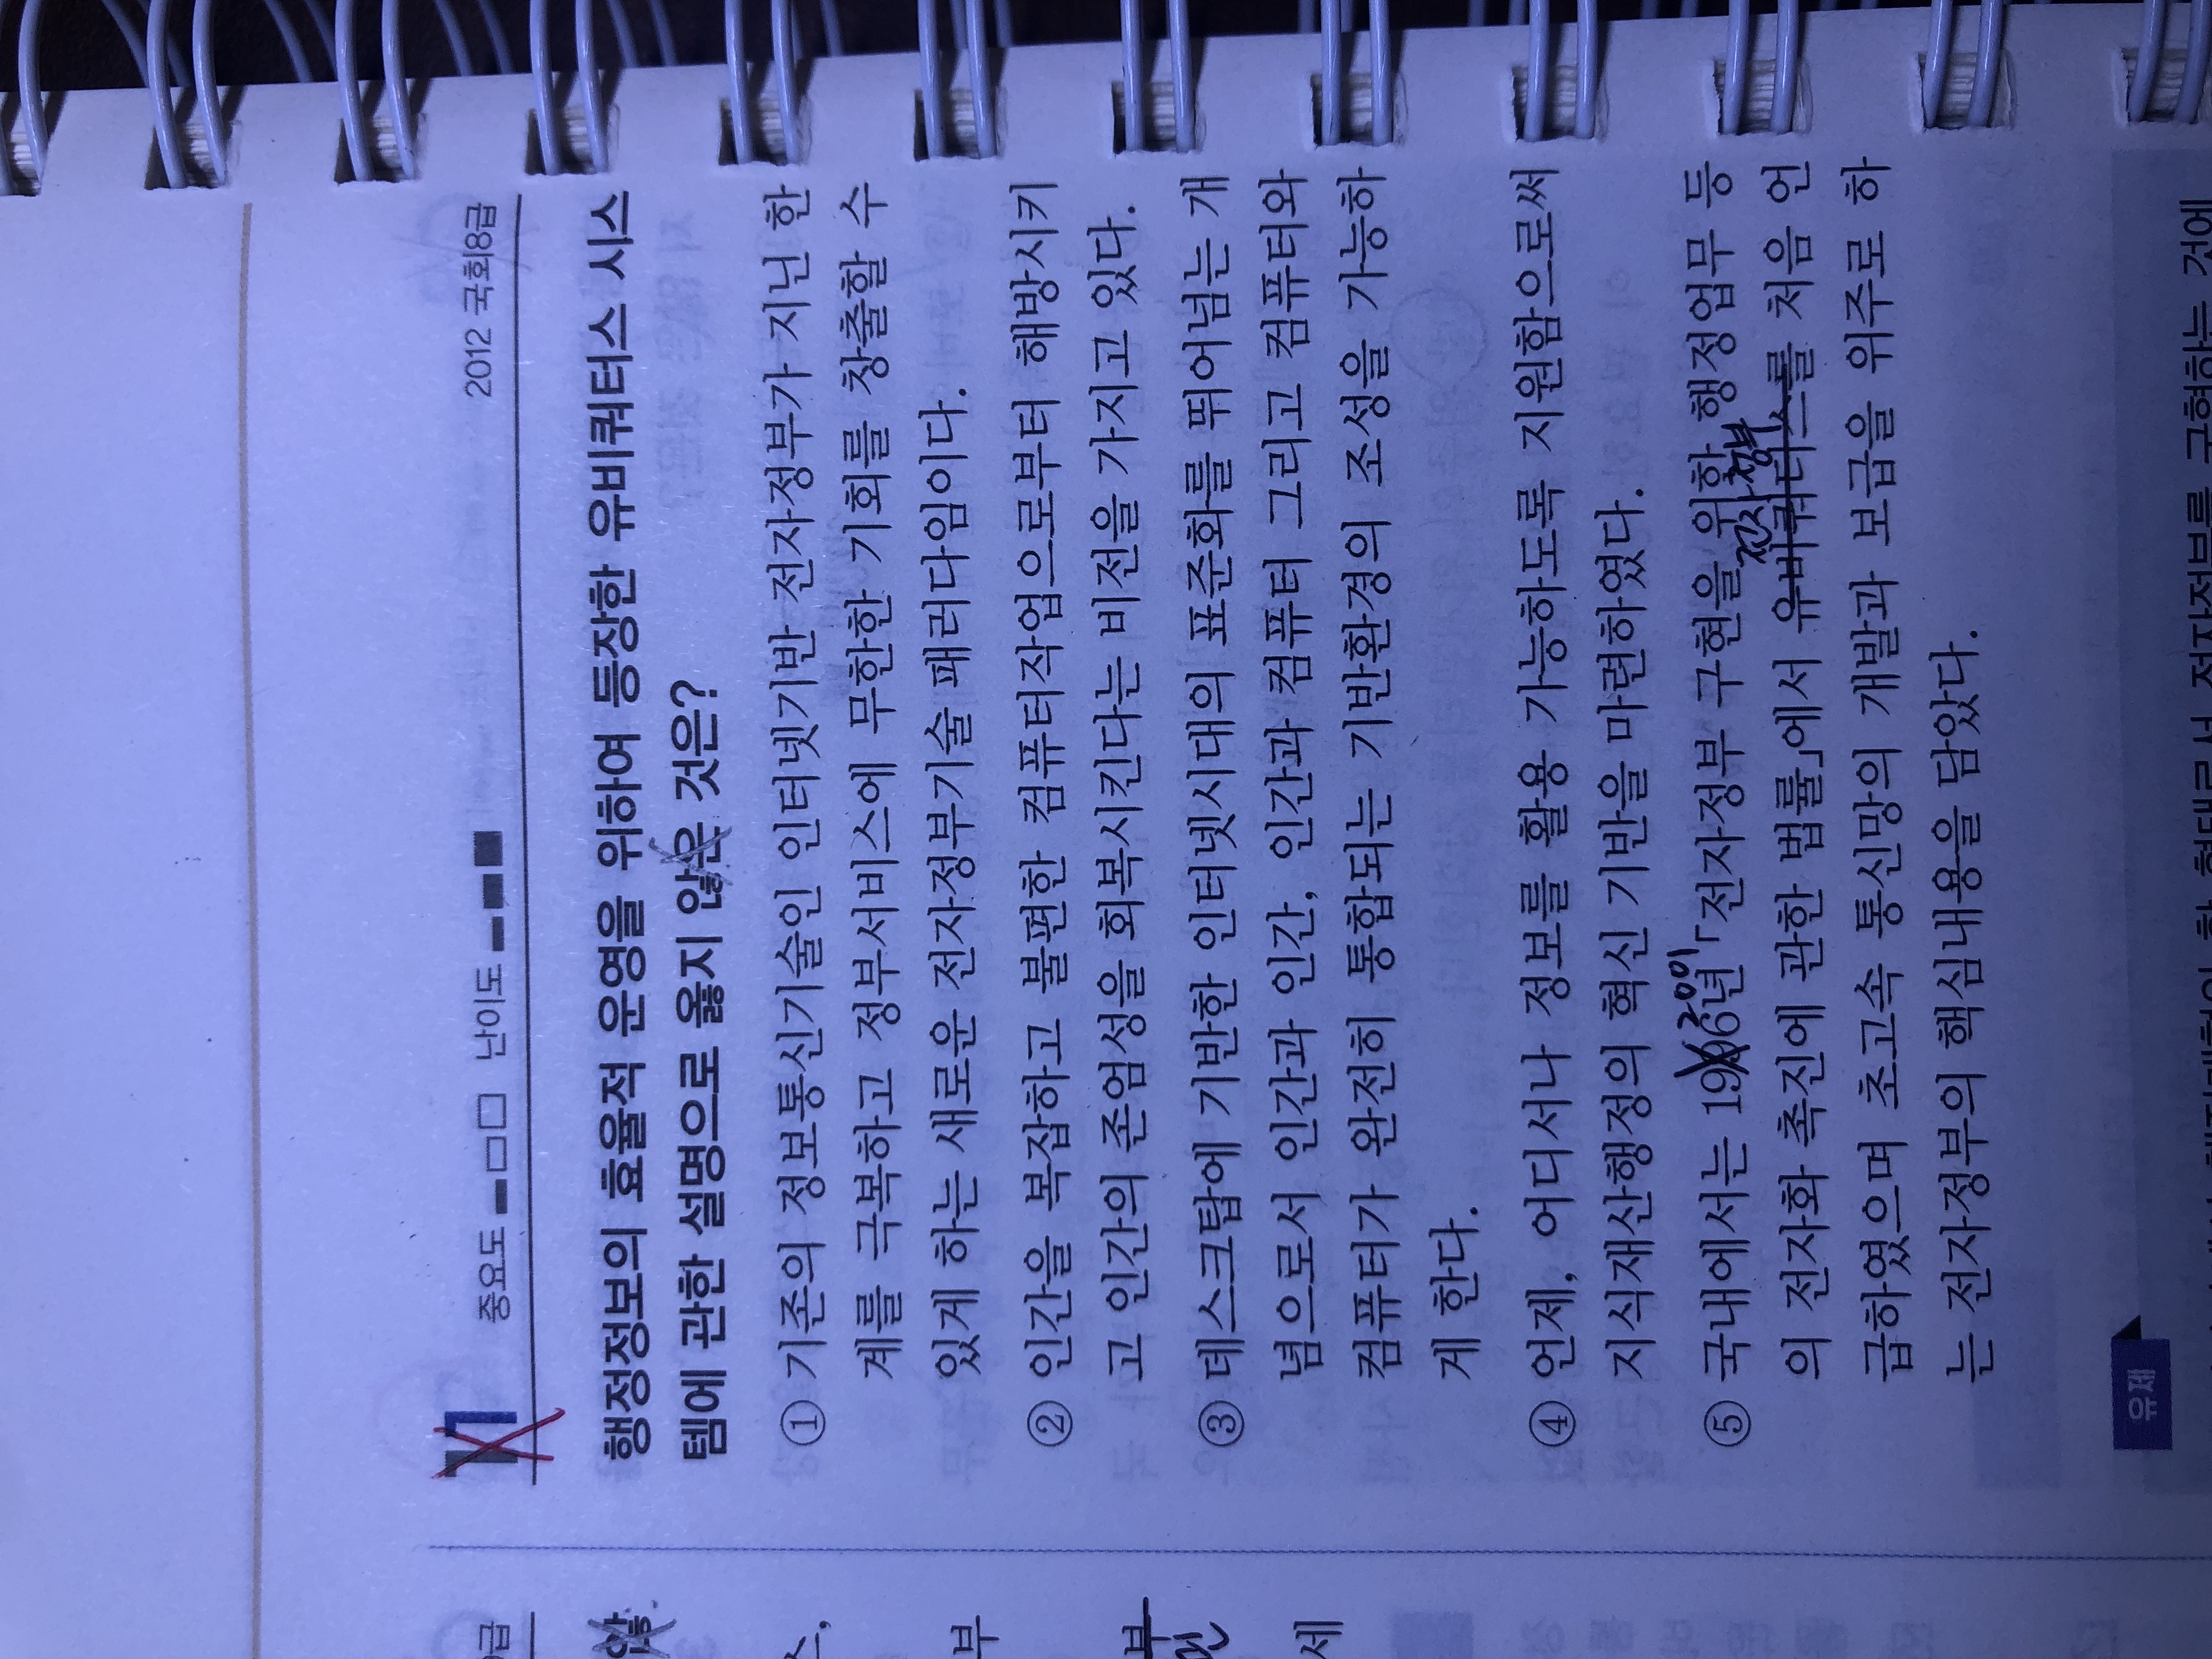 2012 국회8급
중요도 난이도
행정정보의 효율적 운영을 위하여 등장한 유비쿼터스 시스
템에 관한 설명으로 옳지 않은 것은?
① 기존의 정보통신기술인 인터넷기반 전자정부가 지닌 한
계를 극복하고 정부서비스에 무한한 기회를 창출할 수
있게 하는 새로운 전자정부기술 패러다임이다.
② 인간을 복잡하고 불편한 컴퓨터작업으로부터 해방시키
고 인간의 존엄성을 회복시킨다는 비전을 가지고 있다.
③ 데스크탑에 기반한 인터넷시대의 표준화를 뛰어넘는 개
념으로서 인간과 인간, 인간과 컴퓨터 그리고 컴퓨터와
컴퓨터가 완전히 통합되는 기반환경의 조성을 가능하
게 한다.
④ 언제, 어디서나 정보를 활용 가능하도록 지원함으로써
지식재산행정의 혁신 기반을 마련하였다.
2001
⑤ 국내에서는 1996년 「전자정부 구현을 위한 행정업무 등
의 전자화 촉진에 관한 법률」에서 유비쿼터스를 처음 언
급하였으며 초고속 통신망의 개발과 보급을 위주로 하
는 전자정부의 핵심내용을 담았다.
유제
급
않
스,
부
부
세